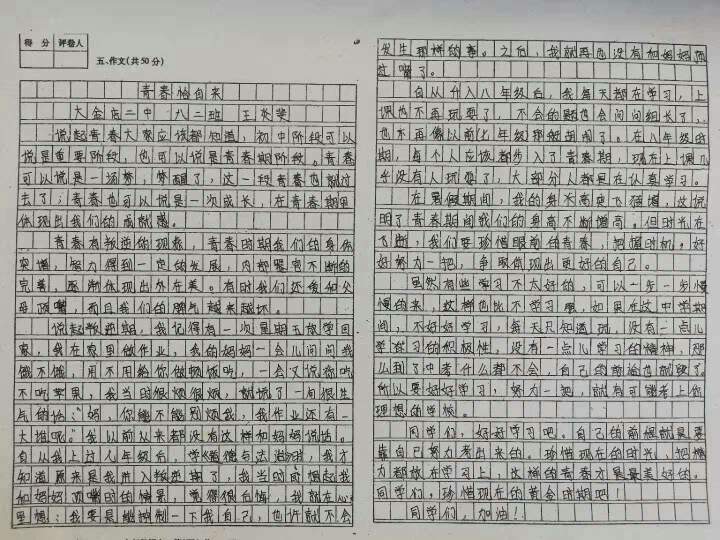 得 分 评卷人
五、作文(共50分)
青春恰自来
大金店二中 八二班 王
说起青春大家应该都知道,初中阶段可以
说是重要阶段,也可以说是青春期阶段。青春
可以说是一场梦,梦醒了,这一段青春也就过
去了;青春也可以说是一次成长,在青春期里
体现出我们的成就感。
青春有叛逆的现象,青春时期我们的身体
突增,智力得到一定的发展,内部器官不断的
完善,逐渐体现出外在美。有时我们还会和父
母顶嘴,而且我们的脾气越来越坏。
说起叛逆期,我记得有一次星期五放学回
家,我在家里做作业,我的妈妈一会儿问问我
饿不饿,用不用给你做顿饭吃,一会又说你吃
不吃苹果,我当时很烦很烦,就说了一句很生
气的话:“妈,你能不能别烦我,我作业还有一
大堆呢。”我以前从来都没有这样和妈妈说话。
自从我上过八年级后,学《道德与法治》时,我才
知道原来是我进入叛逆期了,我当时前想起我
和妈妈顶嘴时的情景,觉得很后悔,我就在心
里想:我要是能抑制一下我自己,也许就不会
发生那样的事。之后,我就再也没有和妈妈顶
过嘴了。
自从升入八年级后,我每天都在学习,上
课也不再玩耍了,不会的题也会问问组长了,
也不再像以前七年级那般胡闹了。在八年级时
期,每个人应该都步入了青春期,现在上课几
乎没有人玩耍了,大部分人都是在认真学习。
在暑假期间,我的身术高突飞猛增,这说
明了青春期间我们的身高不断增高。但时光在
飞逝,我们要珍惜眼前的青春,把握时机。好
好努力一把,争取体现出更好的自己。
虽然有些学习不太好的,可以一步一步慢
慢的来,这样也比不学习强,如果在这中学期
间,不好好学习,每天只知道玩,没有一点儿
学习的积极性,没有一点儿学习的精神,那
么到了中考什么都不会,自己的前途也就毁了。
所以要好好学习,努力一把,就有可能考上你
理想的学校。
同学们,好好学习吧。自己的前程就是要
靠自己努力考出来的。珍惜现在的时光,把精
力都放在学习上,这样的青春才是最美好的。
同学们,珍惜现在的黄金时期吧!
同学们,加油!